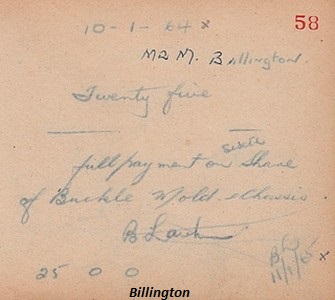 58
10-1-64 x
MR M. Billington.
Twenty five
full payment on sixth Share
of Buckle Mold & Chassis
B Lar
25 0 0
11/1/65 x
Billington